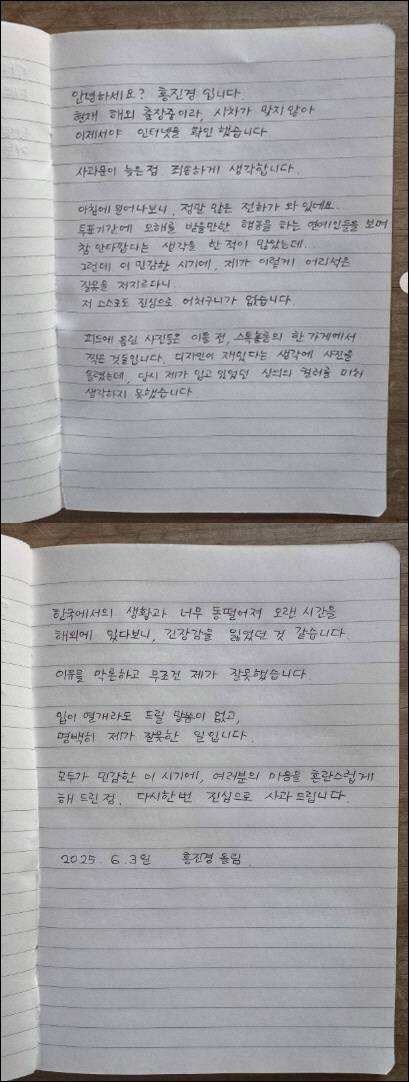 안녕하세요? 홍진경 입니다
현재 해외 출장중이라, 시차가 맞지 않아
이제서야 인터넷을 확인 했습니다
사과문이 늦은점 죄송하게 생각합니다.
아침에 일어나보니, 정말 많은 전화가 와 있네요.
투표기간에 오해를 받을만한 행동을 하는 연예인들을 보며
참 안타깝다는 생각을 한 적이 많았는데...
그런데 이 민감한 시기에, 제가 이렇게 어리석은
잘못을 저지르다니.
저 스스로도 진심으로 어처구니가 없습니다
피드에 올린 사진들은 이틀 전, 스톡홀름의 한 가게에서
찍은 것들입니다. 디자인이 재밌다는 생각에 사진을
올렸는데, 당시 제가 입고 있었던 상의의 컬러를 미처
생각하지 못했습니다.
한국에서의 생활과 너무 동떨어져 오랜 시간을
해외에 있다보니, 긴장감을 잃었던 것 같습니다.
이유를 막론하고 무조건 제가 잘못했습니다.
입이 열개라도 드릴 말씀이 없고,
명백히 제가 잘못한 일입니다.
모두가 민감한 이 시기에, 여러분의 마음을 혼란스럽게
해 드린 점. 다시한번 진심으로 사과 드립니다.
2025. 6. 3일 홍진경 올림.